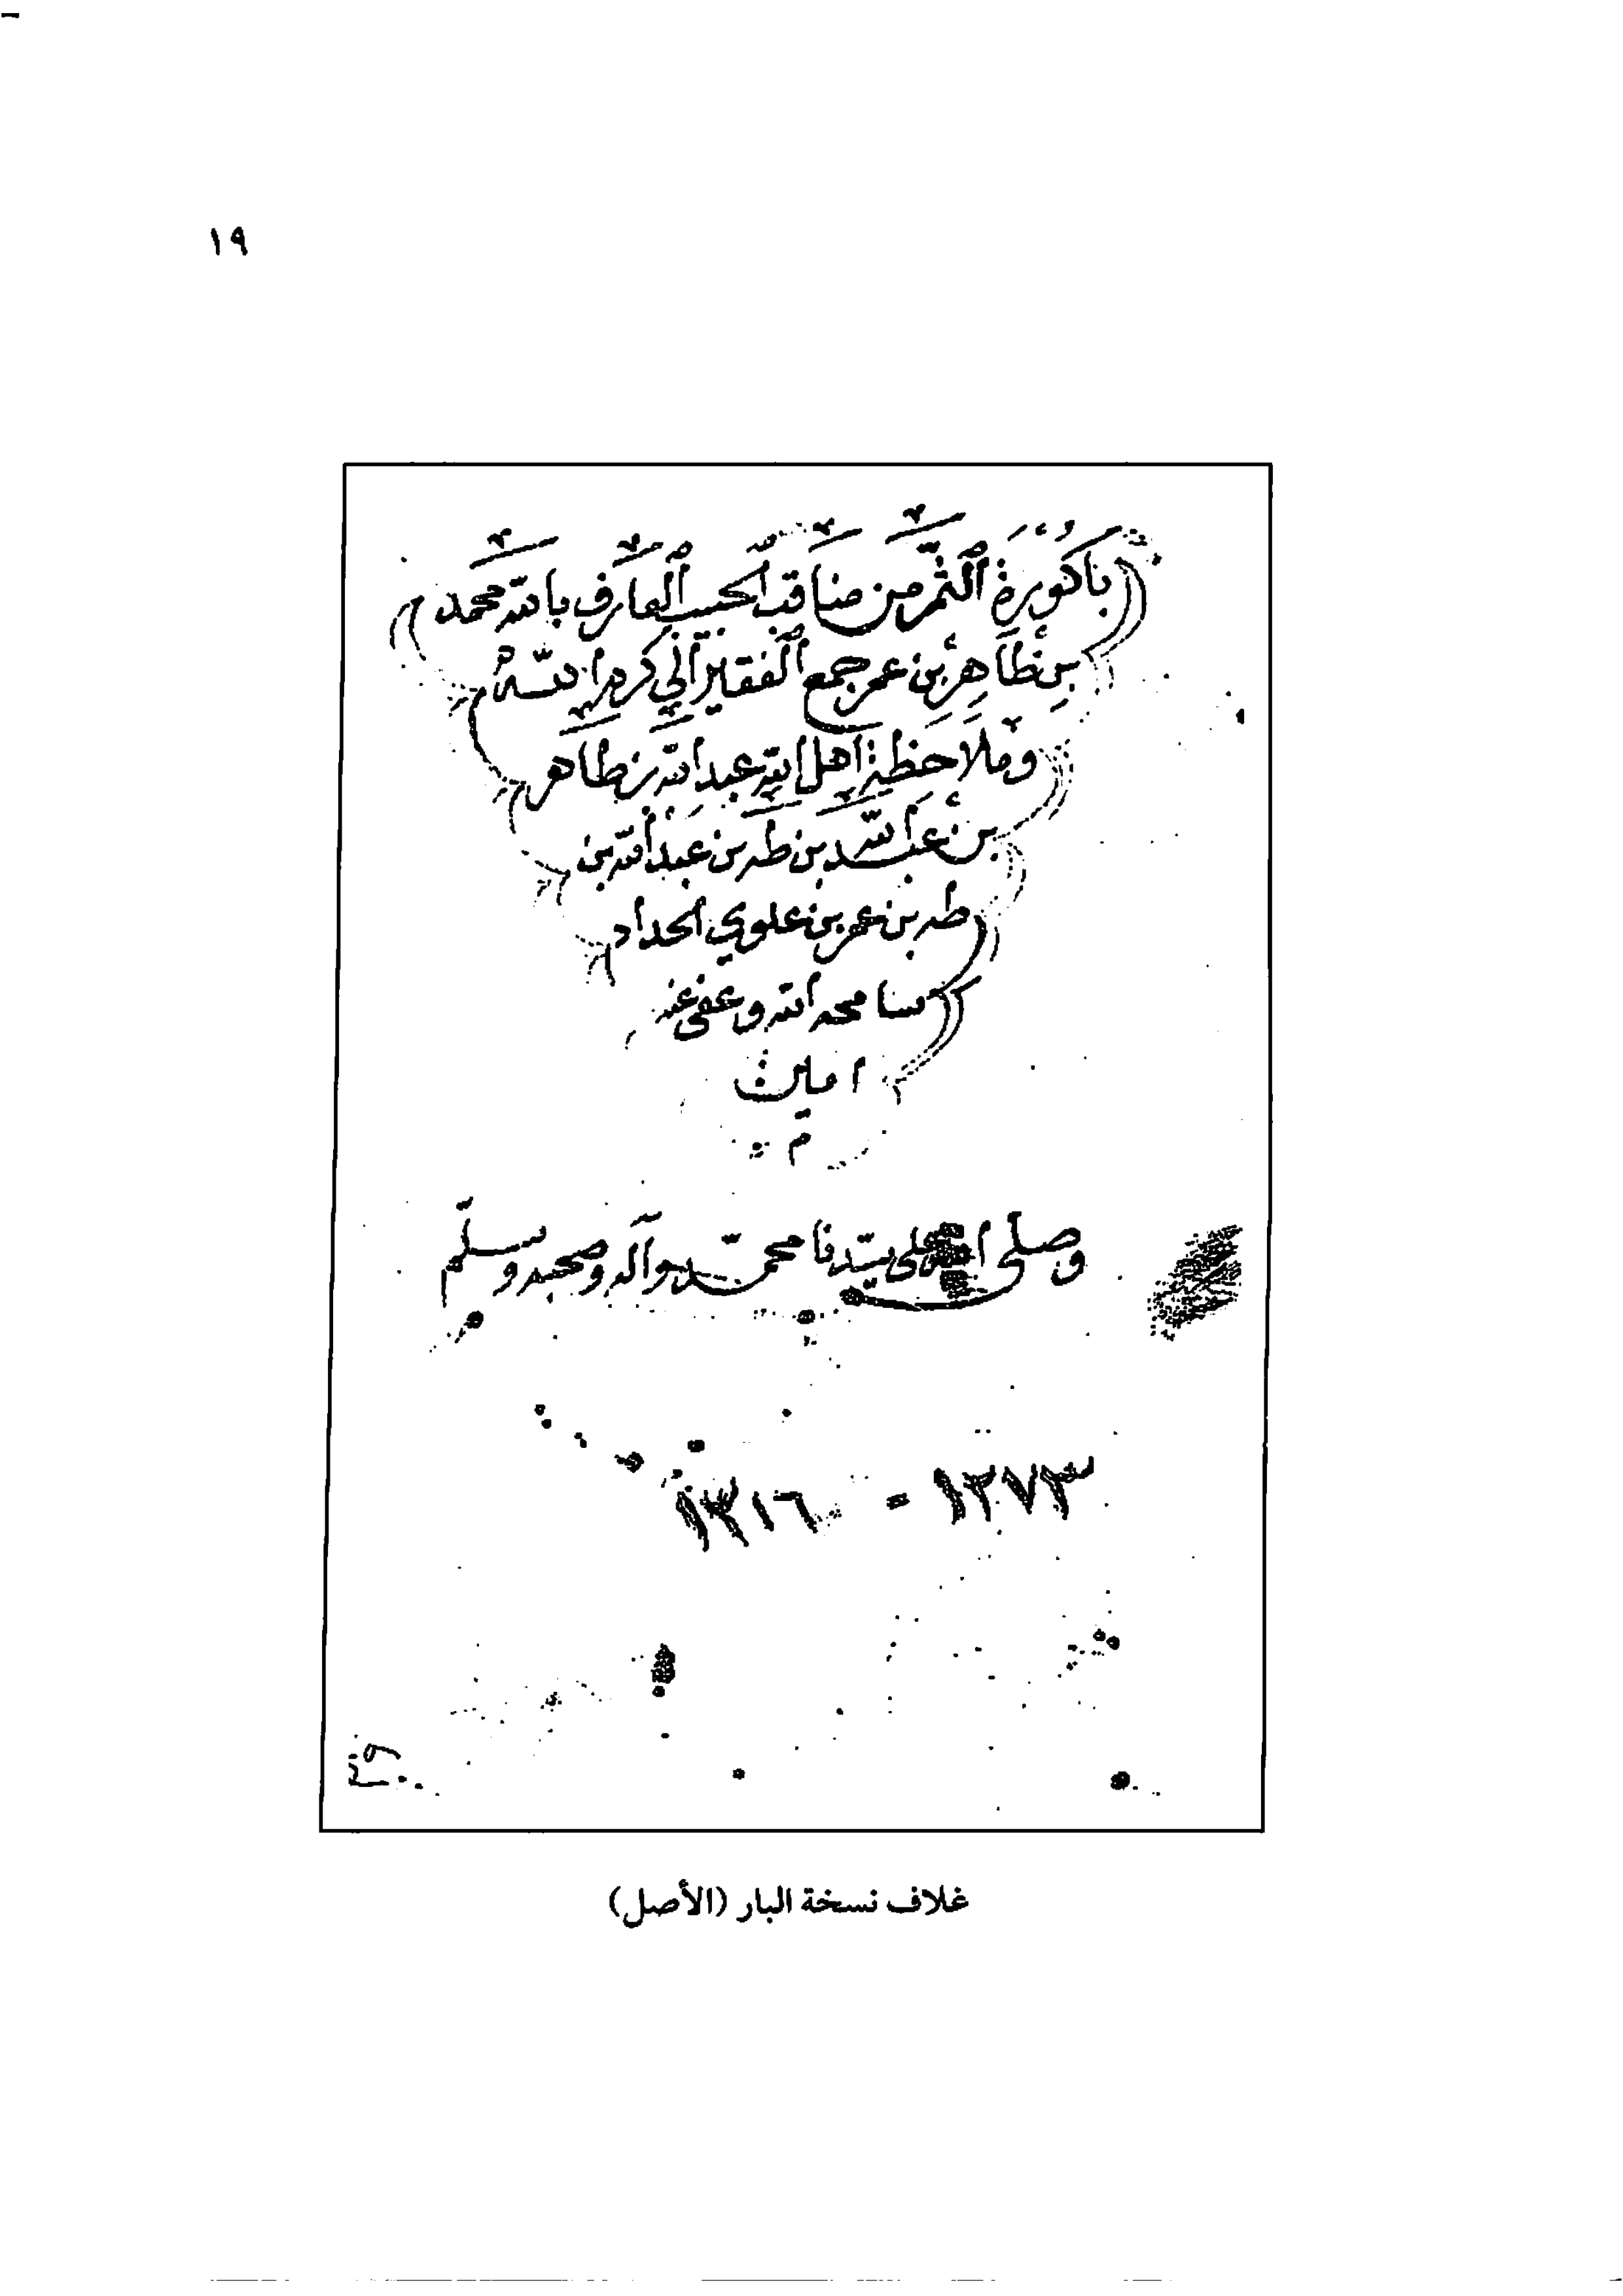 ١٩
باكُورَةُ ٱلثَّمَر من مناقب ٱلحبيب ٱلعارف بالله محمد
بن طاهر بن عمر جمع ٱلفقير إلى كرم الله
وملاحظة أهل الله عبد الله بن طاهر
بن عبد الله بن طه بن عبد الله بن
طه بن عمر بن علوي الحداد
سامحه الله وعفى عنه
امين
م
وصلى الله على سيّدنا محمّد وآله وصحبه وسلّم
١٢٧٣ - ١٣١٦
غلاف نسخة البار (الأصل)